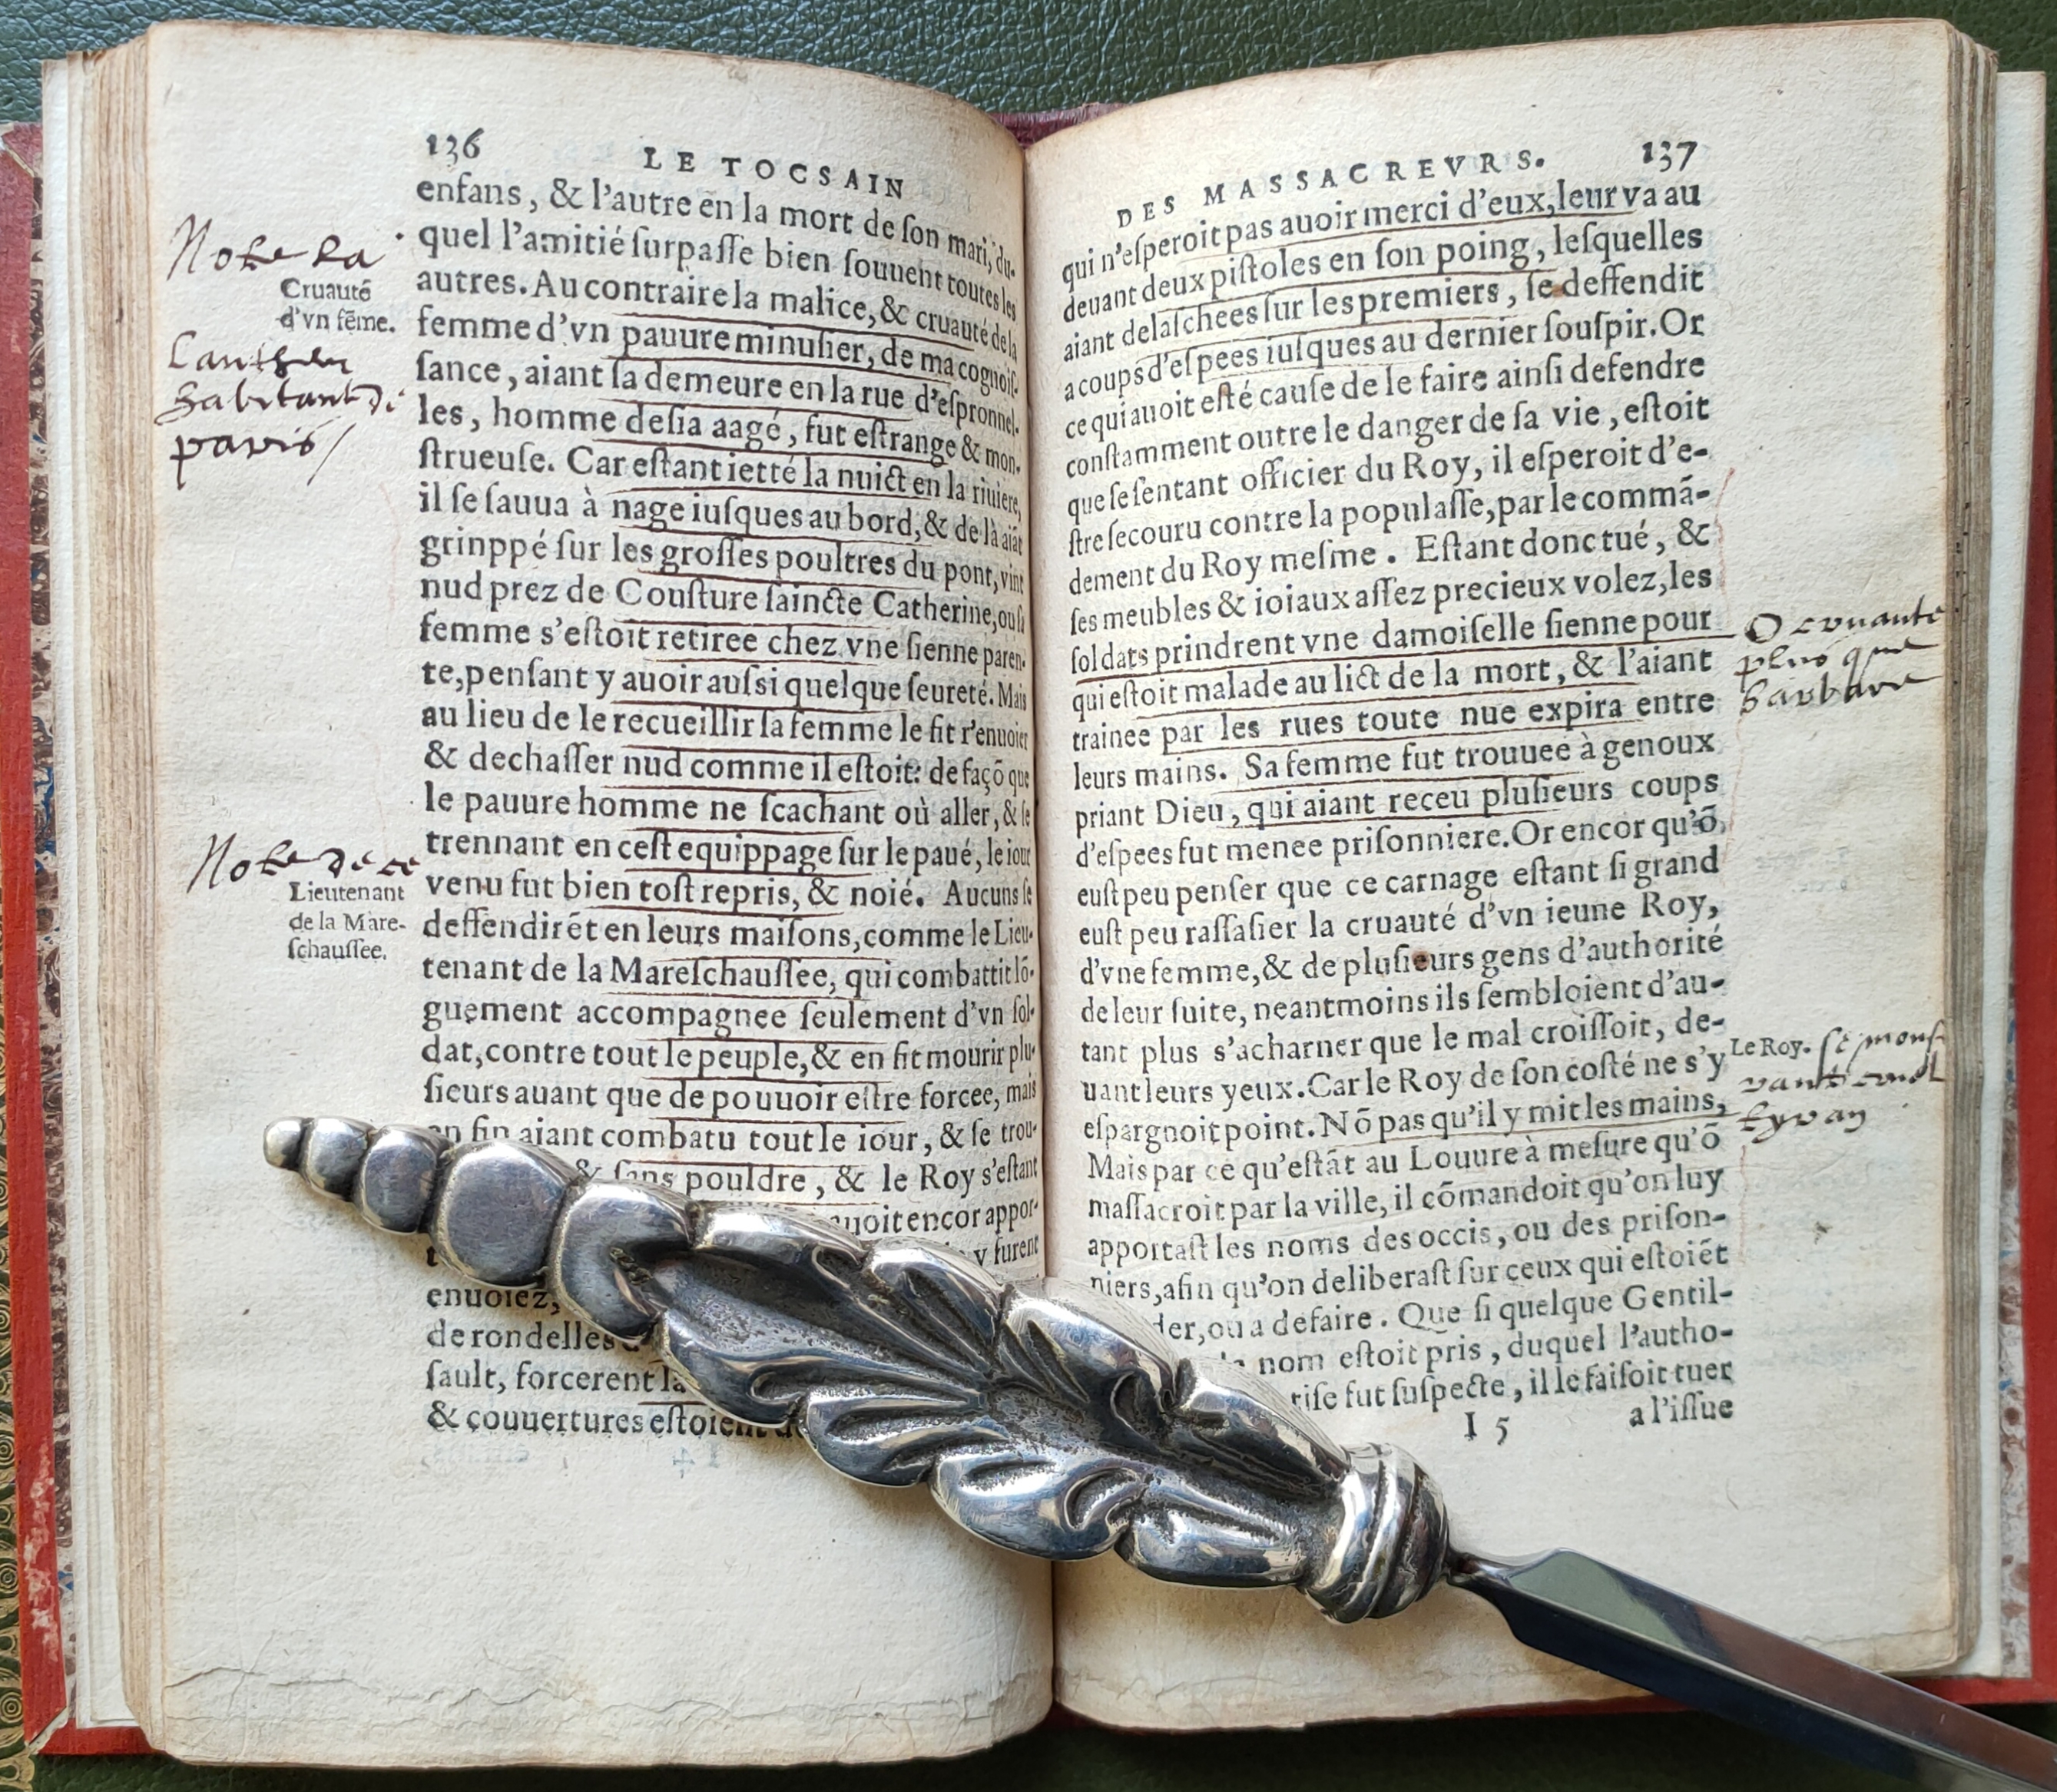 136 LE TOCSAIN
enfans, & l'autre en la mort de ſon mari, du-
quel l'amitié ſurpaſſe bien ſouuent toutes les
autres. Au contraire la malice, & cruauté de la
femme d'vn pauure minuſier, de ma cognoiſ-
ſance, aiant ſa demeure en la rue d'eſpronnel-
les, homme deſia aagé, fut eſtrange & mon-
ſtrueuſe. Car eſtant ietté la nuict en la riuiere,
il ſe ſauua à nage iuſques au bord, & de là aiãt
grinppé ſur les groſſes poultres du pont, vint
nud prez de Couſture ſaincte Catherine, ou ſa
femme s'eſtoit retiree chez vne ſienne paren-
te, penſant y auoir auſsi quelque ſeureté. Mais
au lieu de le recueillir ſa femme le fit r'enuoier
& dechaſſer nud comme il eſtoit: de façõ que
le pauure homme ne ſcachant où aller, & ſe
trennant en ceſt equippage ſur le paué, le iour
venu fut bien toſt repris, & noié. Aucuns ſe
deffendirẽt en leurs maiſons, comme le Lieu-
tenant de la Mareſchauſſee, qui combattit lõ-
guement accompagnee ſeulement d'vn ſol-
dat, contre tout le peuple, & en fit mourir plu-
ſieurs auant que de pouuoir eſtre forcee, mais
en fin aiant combatu tout le iour, & ſe trou-
& ſans pouldre, & le Roy s'eſtant
auoit encor appor-
y furent
enuoiez,
de rondelles
ſault, forcerent la
& couuertures eſtoient
Note la
Cruauté
d'vn fẽme.
Lautheur
habitant de
paris/
Note de ce
Lieutenant
de la Mare-
ſchauſſee.
DES MASSACREVRS. 137
qui n'eſperoit pas auoir merci d'eux, leur va au
deuant deux piſtoles en ſon poing, leſquelles
aiant delaſchees ſur les premiers, ſe deffendit
a coups d'eſpees iuſques au dernier ſouſpir. Or
ce qui auoit eſté cauſe de le faire ainſi defendre
conſtamment outre le danger de ſa vie, eſtoit
que ſe ſentant officier du Roy, il eſperoit d'e-
ſtre ſecouru contre la populaſſe, par le commã-
dement du Roy meſme. Eſtant donc tué, &
ſes meubles & ioiaux aſſez precieux volez, les
ſoldats prindrent vne damoiſelle ſienne pour
qui eſtoit malade au lict de la mort, & l'aiant
trainee par les rues toute nue expira entre
leurs mains. Sa femme fut trouuee à genoux
priant Dieu, qui aiant receu pluſieurs coups
d'eſpees fut menee priſonniere. Or encor qu'õ
euſt peu penſer que ce carnage eſtant ſi grand
euſt peu raſſaſier la cruauté d'vn ieune Roy,
d'vne femme, & de pluſieurs gens d'authorité
de leur ſuite, neantmoins ils ſembloient d'au-
tant plus s'acharner que le mal croiſſoit, de-
uant leurs yeux. Car le Roy de ſon coſté ne s'y
eſpargnoit point. Nõ pas qu'il y mit les mains,
Mais par ce qu'eſtãt au Louure à meſure qu'õ
maſſacroit par la ville, il cõmandoit qu'on luy
apportaſt les noms des occis, ou des priſon-
niers, afin qu'on deliberaſt ſur ceux qui eſtoiẽt
der, ou a defaire. Que ſi quelque Gentil-
nom eſtoit pris, duquel l'autho-
riſe fut ſuſpecte, il le faiſoit tuer
I 5 a l'iſſue
O cruaute
plus que
barbare
Le Roy. ſe monſ
trant cruel
tyran